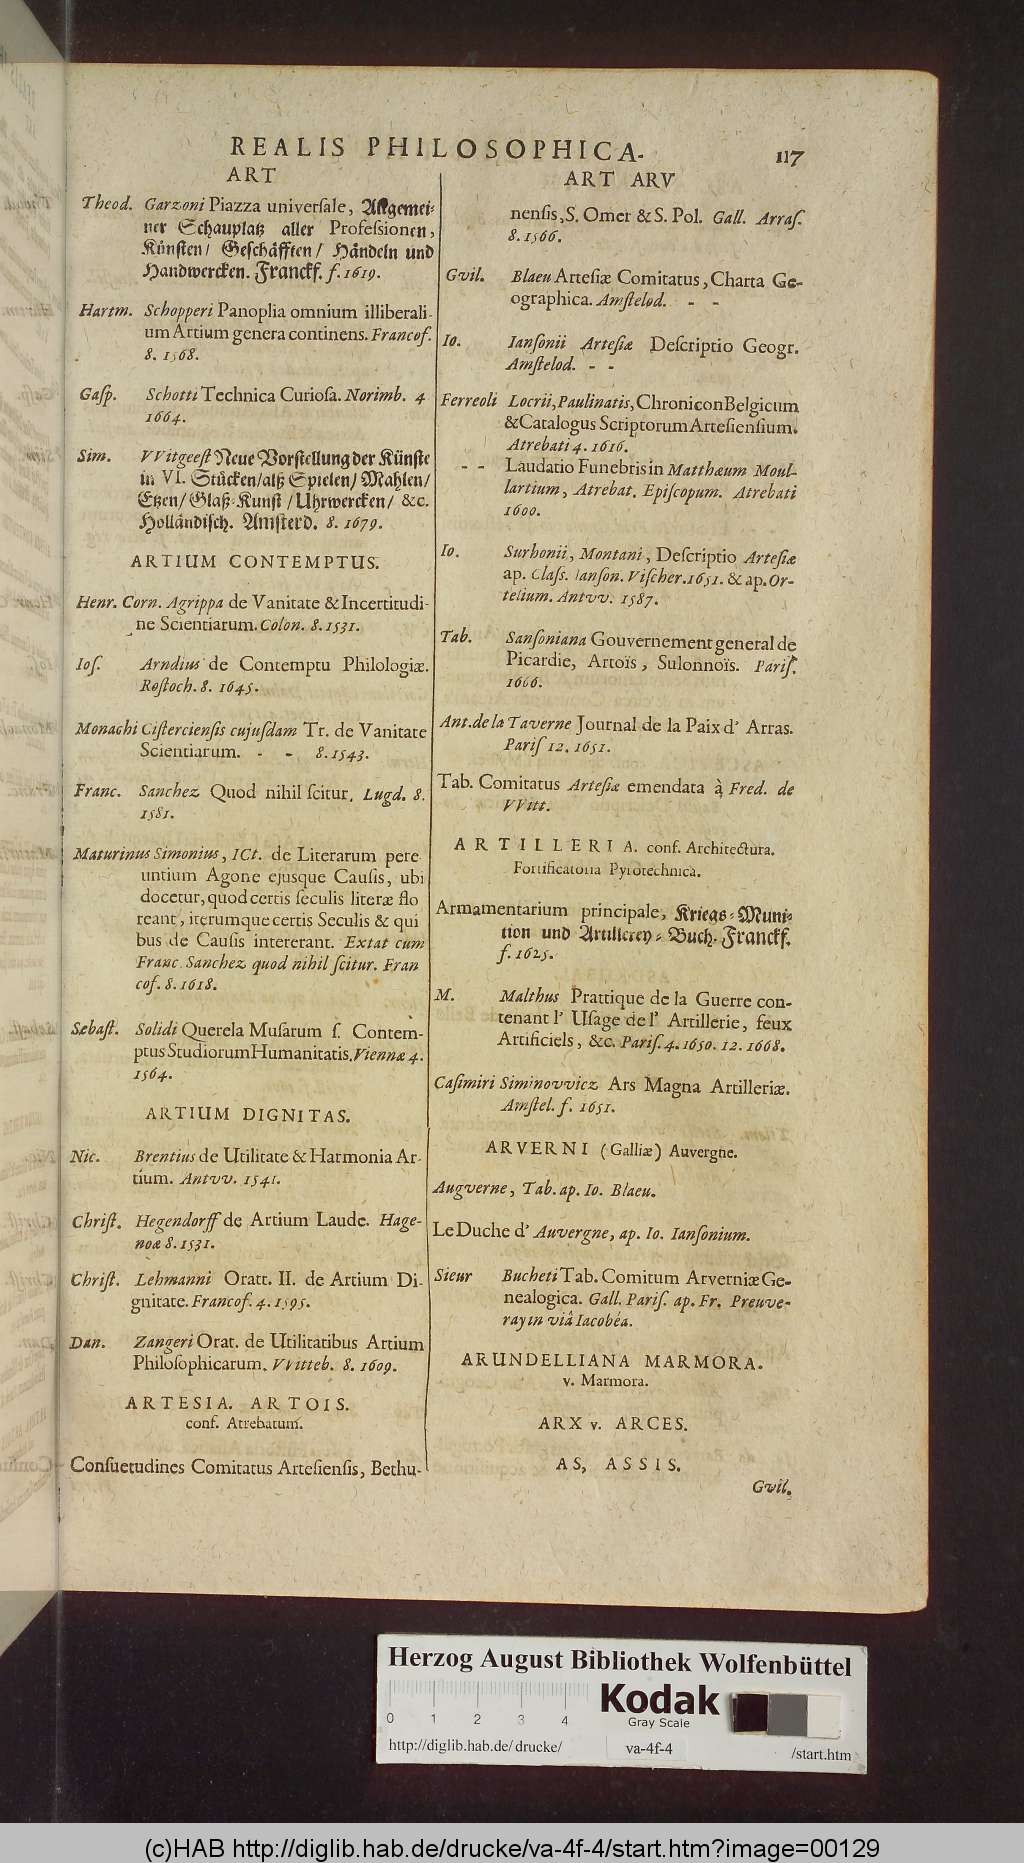 REALIS PHILOSOPHICA. 117
ART
Theod. Garzoni Piazza universale, Allgemei-
ner Schauplatz aller Professionen,
Künsten/ Geschäfften/ Händeln und
Handwercken. Franckf. f. 1619.
Hartm. Schopperi Panoplia omnium illiberali-
um Artium genera continens. Francof.
8. 1568.
Gasp. Schotti Technica Curiosa. Norimb. 4
1664.
Sim. VVitgeest Neue Vorstellung der Künste
in VI. Stücken/alß Spielen/ Mahlen/
Etzen/ Glaß-Kunst/ Uhrwercken/ &c.
Holländisch. Amsterd. 8. 1679.
ARTIUM CONTEMPTUS.
Henr. Corn. Agrippa de Vanitate & Incertitudi-
ne Scientiarum. Colon. 8. 1531.
Ios. Arndius de Contemptu Philologiæ.
Rostoch. 8. 1645.
Monachi Cisterciensis cujusdam Tr. de Vanitate
Scientiarum. - - 8. 1543.
Franc. Sanchez Quod nihil scitur. Lugd. 8.
1581.
Maturinus Simonius, ICt. de Literarum pere
untium Agone ejusque Causis, ubi
docetur, quod certis seculis literæ flo
reant, iterumque certis Seculis & qui
bus de Causis intererant. Extat cum
Franc. Sanchez quod nihil scitur. Fran
cof. 8. 1618.
Sebast. Solidi Querela Musarum s. Contem-
ptus Studiorum Humanitatis. Viennæ 4.
1564.
ARTIUM DIGNITAS.
Nic. Brentius de Utilitate & Harmonia Ar-
tium. Antvv. 1541.
Christ. Hegendorff de Artium Laude. Hage-
noæ 8. 1531.
Christ. Lehmanni Oratt. II. de Artium Di-
gnitate. Francof. 4. 1595.
Dan. Zangeri Orat. de Utilitatibus Artium
Philosophicarum. VVitteb. 8. 1609.
ARTESIA. ARTOIS.
conf. Atrebatum.
Consuetudines Comitatus Artesiensis, Bethu-
ART ARV
nensis, S. Omer & S. Pol. Gall. Arras.
8. 1566.
Gvil. Blaeu Artesiæ Comitatus, Charta Ge-
ographica. Amstelod. - -
Io. Iansonii Artesiæ Descriptio Geogr.
Amstelod. - -
Ferreoli Locrii, Paulinatis, Chronicon Belgicum
& Catalogus Scriptorum Artesiensium.
Atrebati 4. 1616.
- - Laudatio Funebris in Matthæum Moul-
lartium, Atrebat. Episcopum. Atrebati
1600.
Io. Surhonii, Montani, Descriptio Artesiæ
ap. Class. Ianson. Vischer. 1651. & ap. Or-
telium. Antvv. 1587.
Tab. Sansoniana Gouvernement general de
Picardie, Artoïs, Sulonnoïs. Paris.
1666.
Ant. de la Taverne Journal de la Paix d' Arras.
Paris 12. 1651.
Tab. Comitatus Artesiæ emendata à Fred. de
VVitt.
ARTILLERIA. conf. Architectura.
Fortificatoria Pyrotechnica.
Armamentarium principale, Kriegs-Muni-
tion und Artillerey-Buch. Franckf.
f. 1625.
M. Malthus Prattique de la Guerre con-
tenant l' Usage de l' Artillerie, feux
Artificiels, &c. Paris. 4. 1650. 12. 1668.
Casimiri Siminovvicz Ars Magna Artilleriæ.
Amstel. f. 1651.
ARVERNI (Galliæ) Auvergne.
Augverne, Tab. ap. Io. Blaeu.
Le Duche d' Auvergne, ap. Io. Iansonium.
Sieur Bucheti Tab. Comitum Arverniæ Ge-
nealogica. Gall. Paris. ap. Fr. Preuve-
ray in viâ Iacobéa.
ARUNDELLIANA MARMORA.
v. Marmora.
ARX v. ARCES.
AS, ASSIS.
Gvil.
Herzog August Bibliothek Wolfenbüttel
0 1 2 3 4
Kodak
Gray Scale
http://diglib.hab.de/drucke/ va-4f-4 /start.htm
(c)HAB http://diglib.hab.de/drucke/va-4f-4/start.htm?image=00129